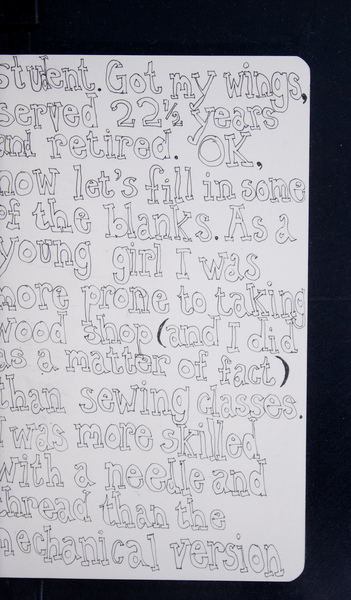 student. Got my wings,
served 22½ years
and retired. OK,
now let's fill in some
of the blanks. As a
young girl I was
more prone to taking
wood shop (and I did
as a matter of fact)
than sewing classes.
I was more skilled
with a needle and
thread than the
mechanical version